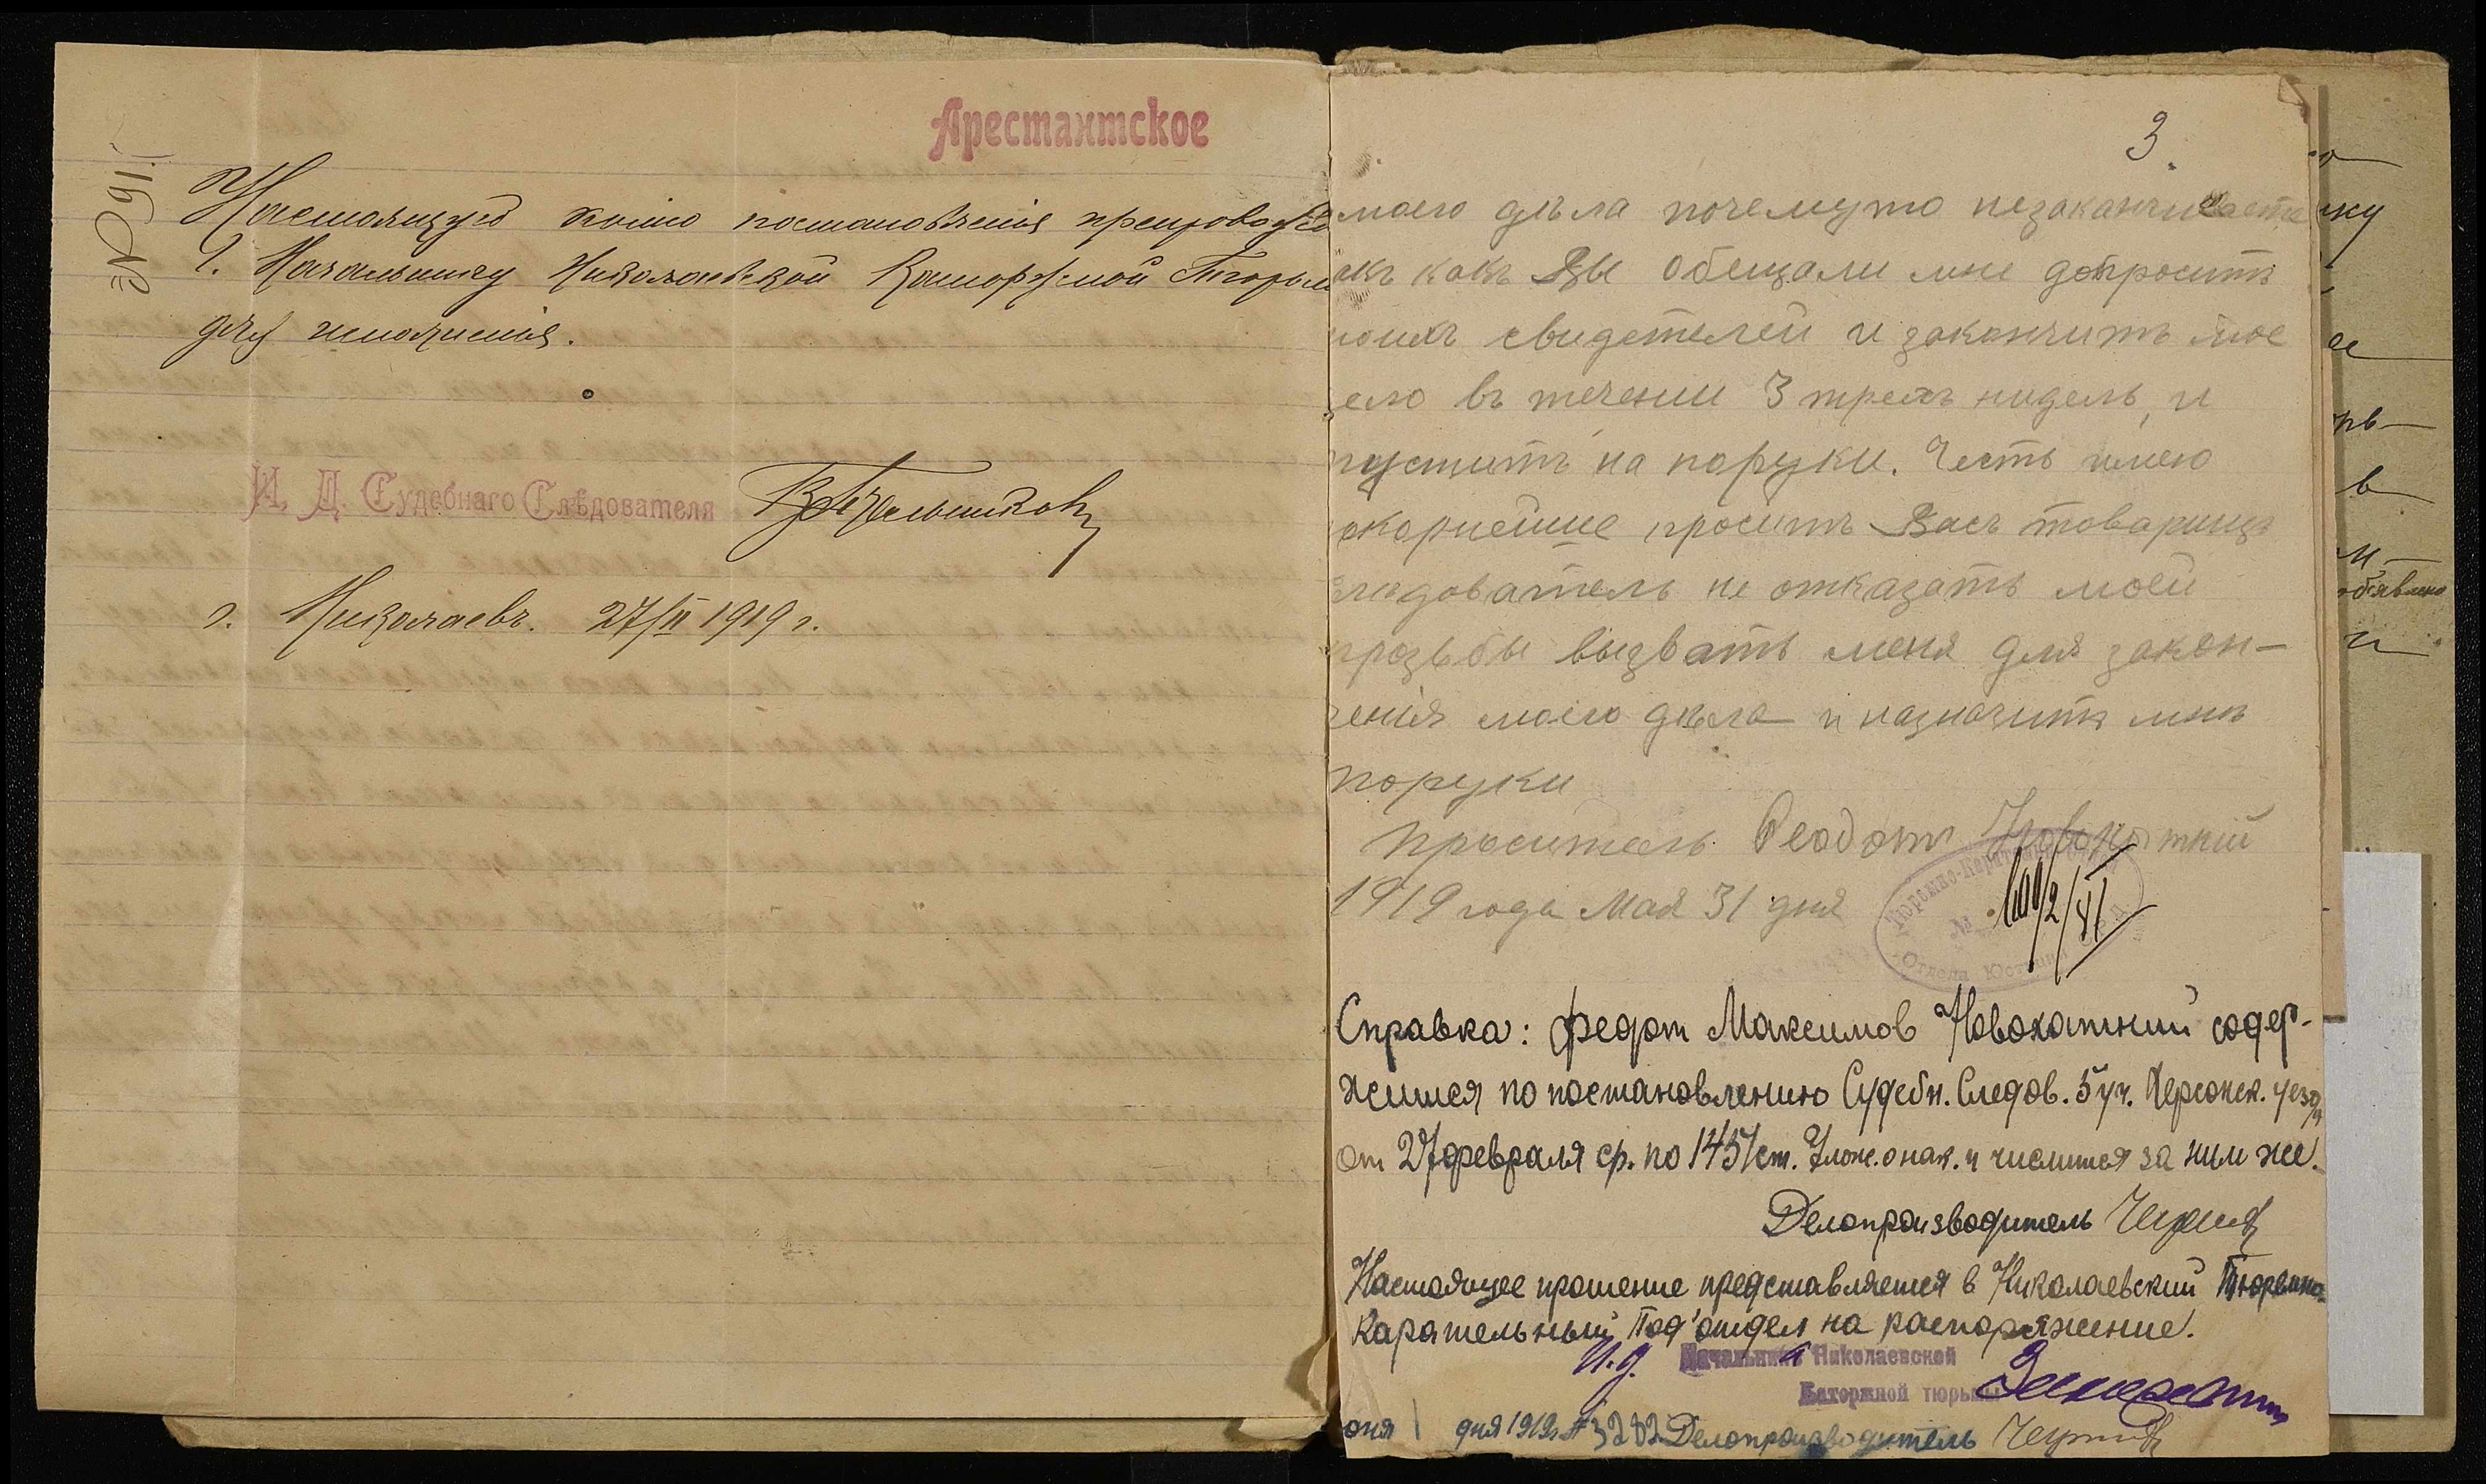 Арестантское
№ 911
Настоящую копію постановленія препровожд
Г. Начальнику Николаевской Каторжной Тюрьм
для исполненія.
И. Д. Судебнаго Слѣдователя
г. Николаевъ. 27/II 1919 г.
3.
моего дѣла почемуто незаканчивается
акъ какъ Вы обещали мне допросить
моихъ свидетелей и закончить мое
ело въ течении 3 трехъ нидель, и
пустить на поруки. Честь имею
окорнейше просить Васъ товарищъ
следователь не отказать моей
прозьбы вызвать меня для закон-
ченія моего дѣла и назначить мнѣ
поруки
проситель Феодотъ Новохатній
1919 года Мая 31 дня
Тюремно-Карательный
№
Отдела Юстиции
2/VI
Справка: Федот Максимов Новохатний содер-
жится по постановлению Судебн. Следов. 5 уч. Херсонск. уезда
от 27 февраля с.г. по 1457 ст. Улож. о нак. и числится за ним же.
Делопроизводитель
Настоящее прошение представляется в Николаевский Тюремно-
Карательный Под'отдел на распоряжение.
И.д. Начальника Николаевской
Каторжной тюрьмы
юня 1 дня 1919 г. № 3282 Делопроизводитель